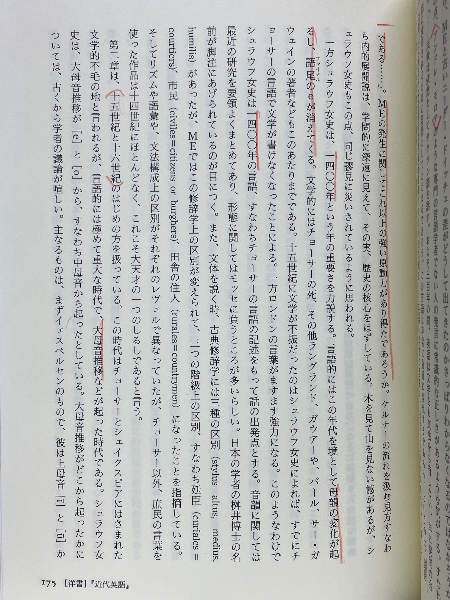 である……。MEの発生に関してこれ以上の強い原動力があり得たであろうか。ケルナーの流れを汲り見方すなわ
ち内的展開説は、学問的に深遠に見えて、その実、歴史の核心をはずしている。木を見て山を見ない憾があるが、シ
ュラウフ女史もこの点、同じ謬見に災いされているように思われる。
一方シュラウフ女史は、一四〇〇年という年の重要さを力説する。言語的にはこの年代を境として母韻の変化が起
るし、語尾のeが消えてくる。文学的にはチョーサーの死、その他ラングランド、ガウアーや、パール、サー・ガ
ウェインの著者などもこのあたりまでである。十五世紀に文学が不振だったのはシュラウフ女史によれば、すでにチ
ョーサーの言語で文学が書けなくなったことによる。一方ロンドンの言葉がますます強力になる。このようなわけで
シュラウフ女史は一四〇〇年の言語、すなわちチョーサーの言語の記述をもって話の出発点とする。音韻に関しては
最近の研究を要領よくまとめてあり、形態に関してはモッセに負うところが多いらしい。日本の学者の桝井博士の名
前が脚注にあげられているのが目につく。また、文体を説く時、古典修辞学には三種の区別 (stilus altus, medius,
humilis) があったが、MEではこの修辞学上の区別が変えられて、三つの階級上の区別、すなわち廷臣 (curiales=
courtiers)、市民 (civiles=citizens or burghers)、田舎の住人 (rurales=countrymen) になったことを指摘している。
そしてリズムや語彙や、文法構成上の区別がそれぞれのレヴェルで異なっていたが、チョーサー以外、庶民の言葉を
使った作品は十四世紀にはほとんどなく、これこそ大天才の一つのしるしであると言う。
第二章は、十五世紀と十六世紀のはじめの方を扱っている。この時代はチョーサーとシェイクスピアにはさまれた
文学的不毛の地と言われるが、言語的には極めて重大な時代で、大母音推移などが起った時代である。シュラウフ女
史は、大母音推移が [e] と [o] から、すなわち中母音から起ったとしている。大母音推移がどこから起ったかに
ついては、古くから学者の議論が喧しい。主なるものは、まずイェスペルセンのもので、彼は上母音 [i] と [u] か
175 [洋書]『近代英語』